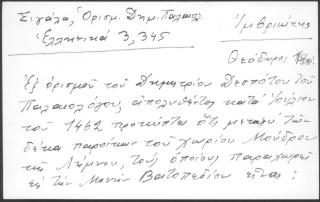 Σιγάλα, Ὁρισμ. Δημ. Παλαιολ.
Ἑλληνικά 3, 345
Ἰμβριώτης
Θεόδωρος
Ἐξ ὁρισμοῦ τοῦ Δημητρίου Δεσπότου τοῦ
Παλαιολόγου, ἀπολυθέντος κατά Ἰούλιον
τοῦ 1462 προκύπτει ὅτι μεταξύ τῶν
δέκα παροίκων τοῦ χωρίου Μούδρου
τῆς Λήμνου, τούς ὁποίους παραχωρεῖ
εἰς τήν Μονήν Βατοπεδίου εἶναι :